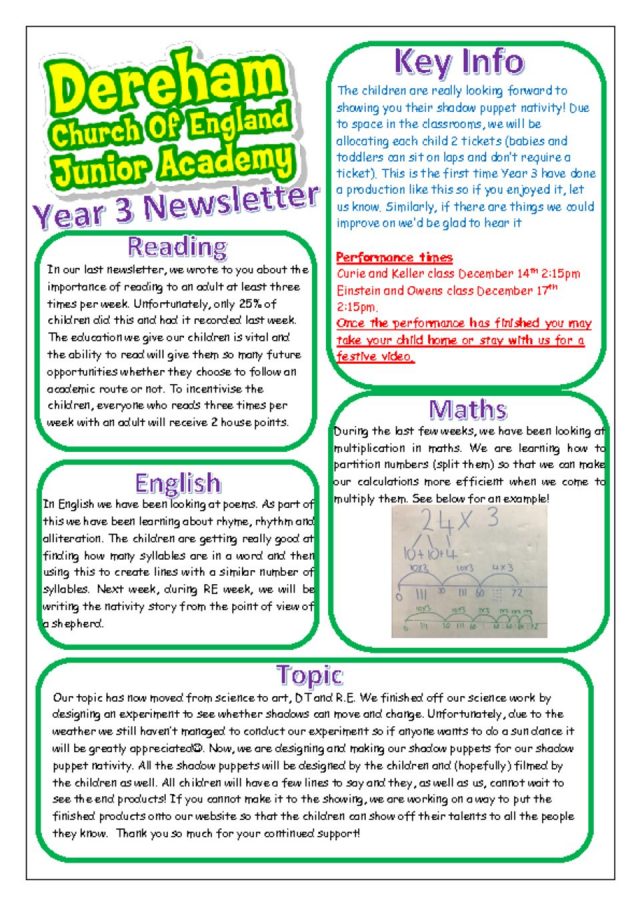 Dereham
Church Of England
Junior Academy
Year 3 Newsletter
Key Info
The children are really looking forward to
showing you their shadow puppet nativity! Due
to space in the classrooms, we will be
allocating each child 2 tickets (babies and
toddlers can sit on laps and don't require a
ticket). This is the first time Year 3 have done
a production like this so if you enjoyed it, let
us know. Similarly, if there are things we could
improve on we'd be glad to hear it
Performance times
Curie and Keller class December 14th 2:15pm
Einstein and Owens class December 17th
2:15pm.
Once the performance has finished you may
take your child home or stay with us for a
festive video.
Reading
In our last newsletter, we wrote to you about the
importance of reading to an adult at least three
times per week. Unfortunately, only 25% of
children did this and had it recorded last week.
The education we give our children is vital and
the ability to read will give them so many future
opportunities whether they choose to follow an
academic route or not. To incentivise the
children, everyone who reads three times per
week with an adult will receive 2 house points.
Maths
During the last few weeks, we have been looking at
multiplication in maths. We are learning how to
partition numbers (split them) so that we can make
our calculations more efficient when we come to
multiply them. See below for an example!
24 x 3
10+10+4
10x3 10x3 4x3
0 30 60 72
English
In English we have been looking at poems. As part of
this we have been learning about rhyme, rhythm and
alliteration. The children are getting really good at
finding how many syllables are in a word and then
using this to create lines with a similar number of
syllables. Next week, during RE week, we will be
writing the nativity story from the point of view of
a shepherd.
Topic
Our topic has now moved from science to art, DT and R.E. We finished off our science work by
designing an experiment to see whether shadows can move and change. Unfortunately, due to the
weather we still haven't managed to conduct our experiment so if anyone wants to do a sun dance it
will be greatly appreciated☺. Now, we are designing and making our shadow puppets for our shadow
puppet nativity. All the shadow puppets will be designed by the children and (hopefully) filmed by
the children as well. All children will have a few lines to say and they, as well as us, cannot wait to
see the end products! If you cannot make it to the showing, we are working on a way to put the
finished products onto our website so that the children can show off their talents to all the people
they know. Thank you so much for your continued support!